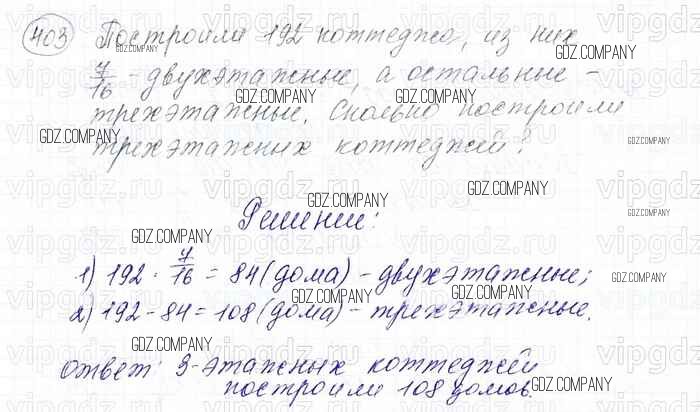 403 Построили 192 коттеджа, из них
7/16 - двухэтажные, а остальные -
трехэтажные. Сколько построили
трехэтажных коттеджей?
Решение:
1) 192 · 7/16 = 84 (дома) - двухэтажные;
2) 192 - 84 = 108 (дома) - трехэтажные.
Ответ: 3-этажных коттеджей
построили 108 домов.
GDZ.COMPANY
vipgdz.ru